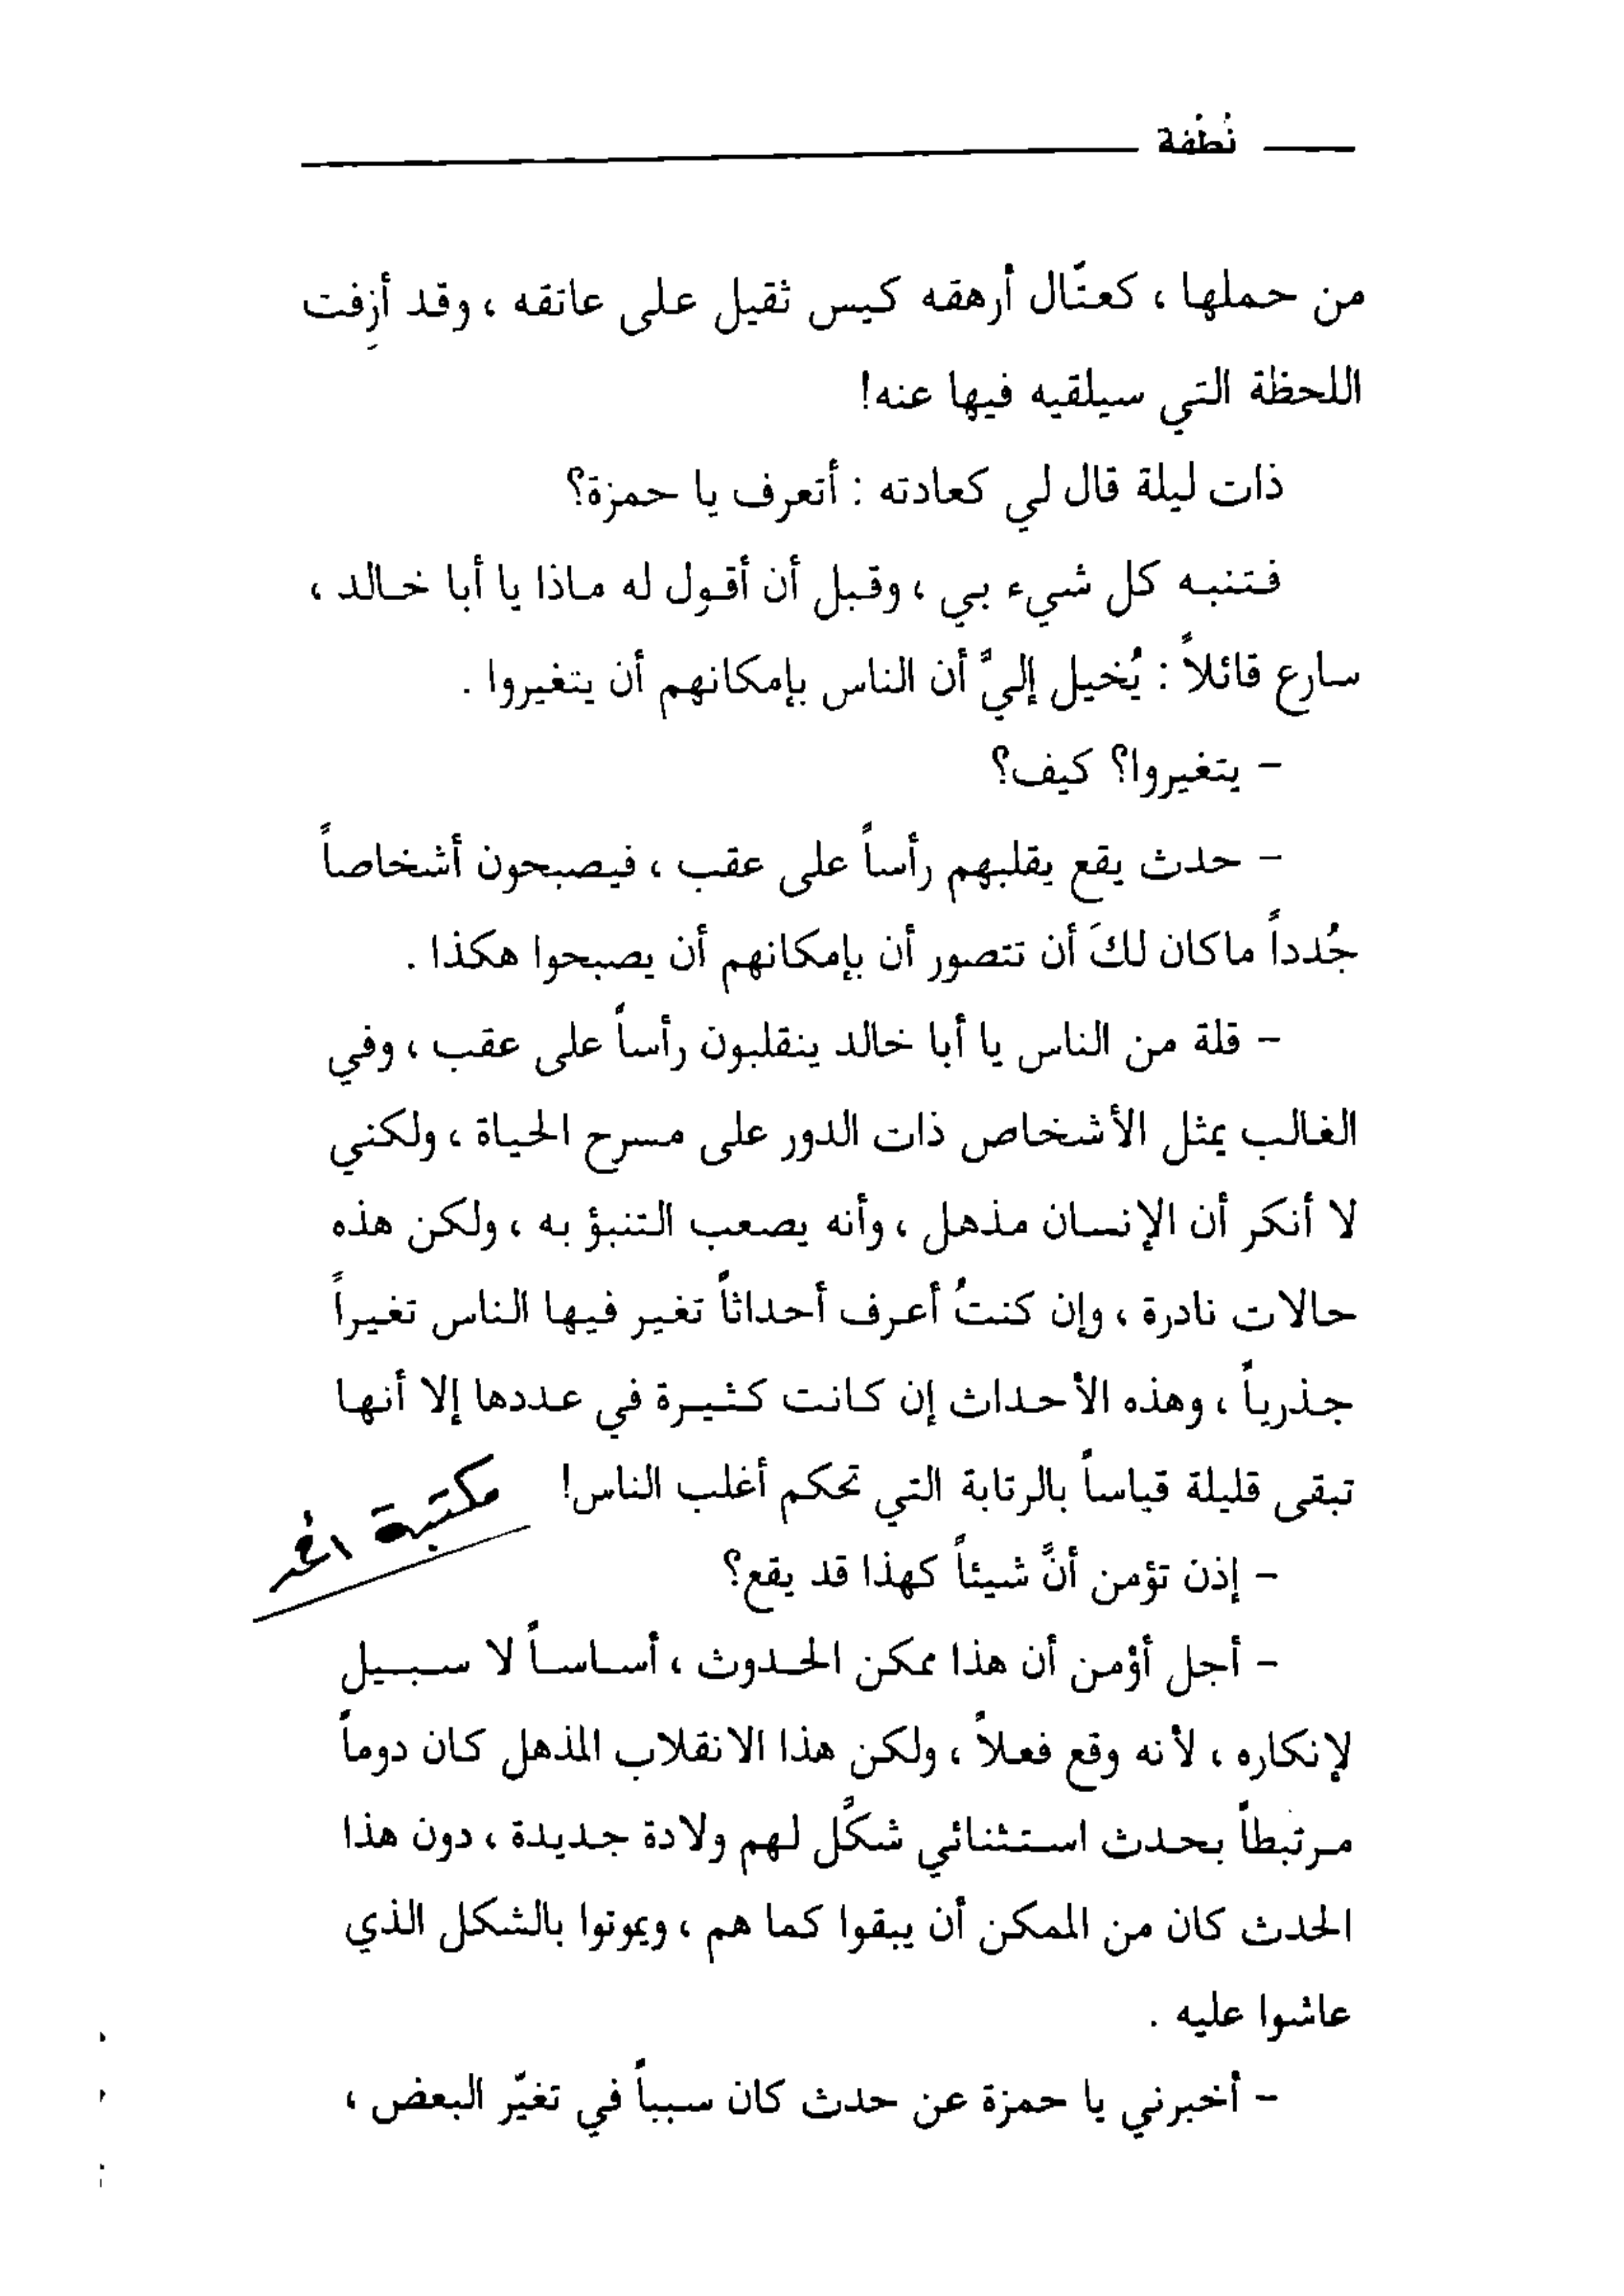 نُطْفة
من حملها ، كعتّال أرهقه كيس ثقيل على عاتقه ، وقد أزِفت
اللحظة التي سيلقيه فيها عنه!
ذات ليلة قال لي كعادته : أتعرف يا حمزة؟
فتنبه كل شيء بي ، وقبل أن أقول له ماذا يا أبا خالد ،
سارع قائلاً : يُخيل إليَّ أن الناس بإمكانهم أن يتغيروا .
- يتغيروا؟ كيف؟
- حدث يقع يقلبهم رأساً على عقب ، فيصبحون أشخاصاً
جُدداً ماكان لكَ أن تتصور أن بإمكانهم أن يصبحوا هكذا .
- قلة من الناس يا أبا خالد ينقلبون رأساً على عقب ، وفي
الغالب يمثل الأشخاص ذات الدور على مسرح الحياة ، ولكني
لا أنكر أن الإنسان مذهل ، وأنه يصعب التنبؤ به ، ولكن هذه
حالات نادرة ، وإن كنتُ أعرف أحداثاً تغير فيها الناس تغيراً
جذرياً ، وهذه الأحداث إن كانت كثيرة في عددها إلا أنها
تبقى قليلة قياساً بالرتابة التي تحكم أغلب الناس!
مكتبة
- إذن تؤمن أنَّ شيئاً كهذا قد يقع؟
- أجل أؤمن أن هذا ممكن الحدوث ، أساساً لا سبيل
لإنكاره ، لأنه وقع فعلاً ، ولكن هذا الانقلاب المذهل كان دوماً
مرتبطاً بحدث استثنائي شكَّل لهم ولادة جديدة ، دون هذا
الحدث كان من الممكن أن يبقوا كما هم ، ويموتوا بالشكل الذي
عاشوا عليه .
- أخبرني يا حمزة عن حدث كان سبباً في تغيّر البعض ،